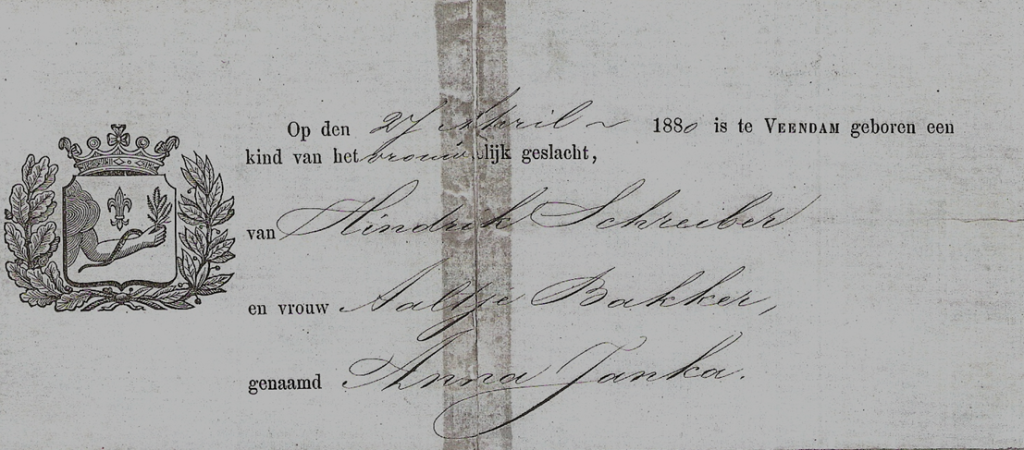 Op den 27 April ~ 1880 is te VEENDAM geboren een
kind van het vrouwlijk geslacht,
van Hindrik Schreiber
en vrouw Aaltje Bakker,
genaamd Anna Janka.